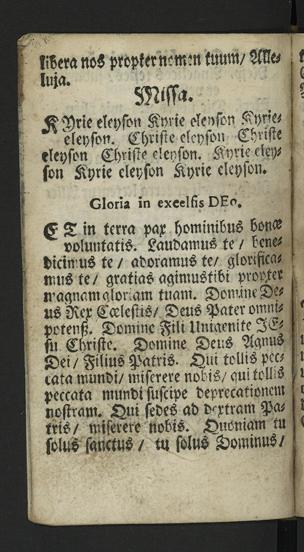 libera nos propter nomen tuum/ Alle-
luja.
Missa.
KYrie eleyson Kyrie eleyson Kyrie-
eleyson. Christe eleyson Christe
eleyson Christe eleyson. Kyrie eley-
son Kyrie eleyson Kyrie eleyson.
Gloria in excelsis DEo.
ET in terra pax hominibus bonæ
voluntatis. Laudamus te/ bene-
dicimus te/ adoramus te/ glorifica-
mus te/ gratias agimustibi propter
magnam gloriam tuam. Domine De-
us Rex Cœlestis/ Deus Pater omni-
potens. Domine Fili Unigenite JE-
su Christe. Domine Deus Agnus
Dei/ Filius Patris. Qui tollis pec-
cata mundi/ miserere nobis/ qui tollis
peccata mundi suscipe deprecationem
nostram. Qui sedes ad dextram Pa-
tris/ miserere nobis. Quoniam tu
solus sanctus/ tu solus Dominus/